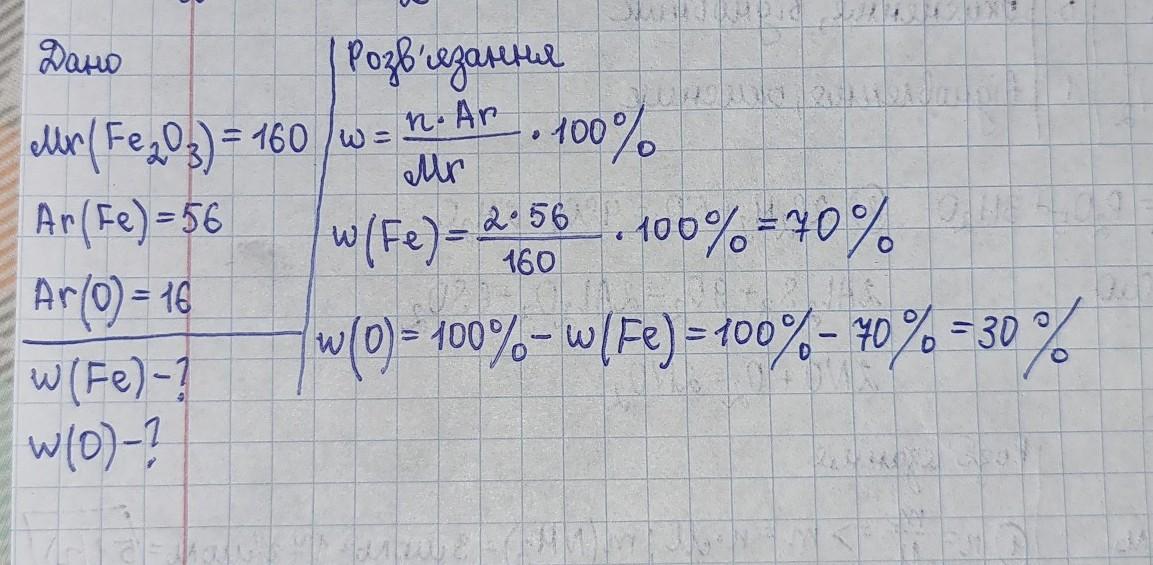 Дано
Mr(Fe₂O₃) = 160
Ar(Fe) = 56
Ar(O) = 16
w(Fe) - ?
w(O) - ?
Розв'язання
w = n · Ar / Mr · 100%
w(Fe) = 2 · 56 / 160 · 100% = 70%
w(O) = 100% - w(Fe) = 100% - 70% = 30%